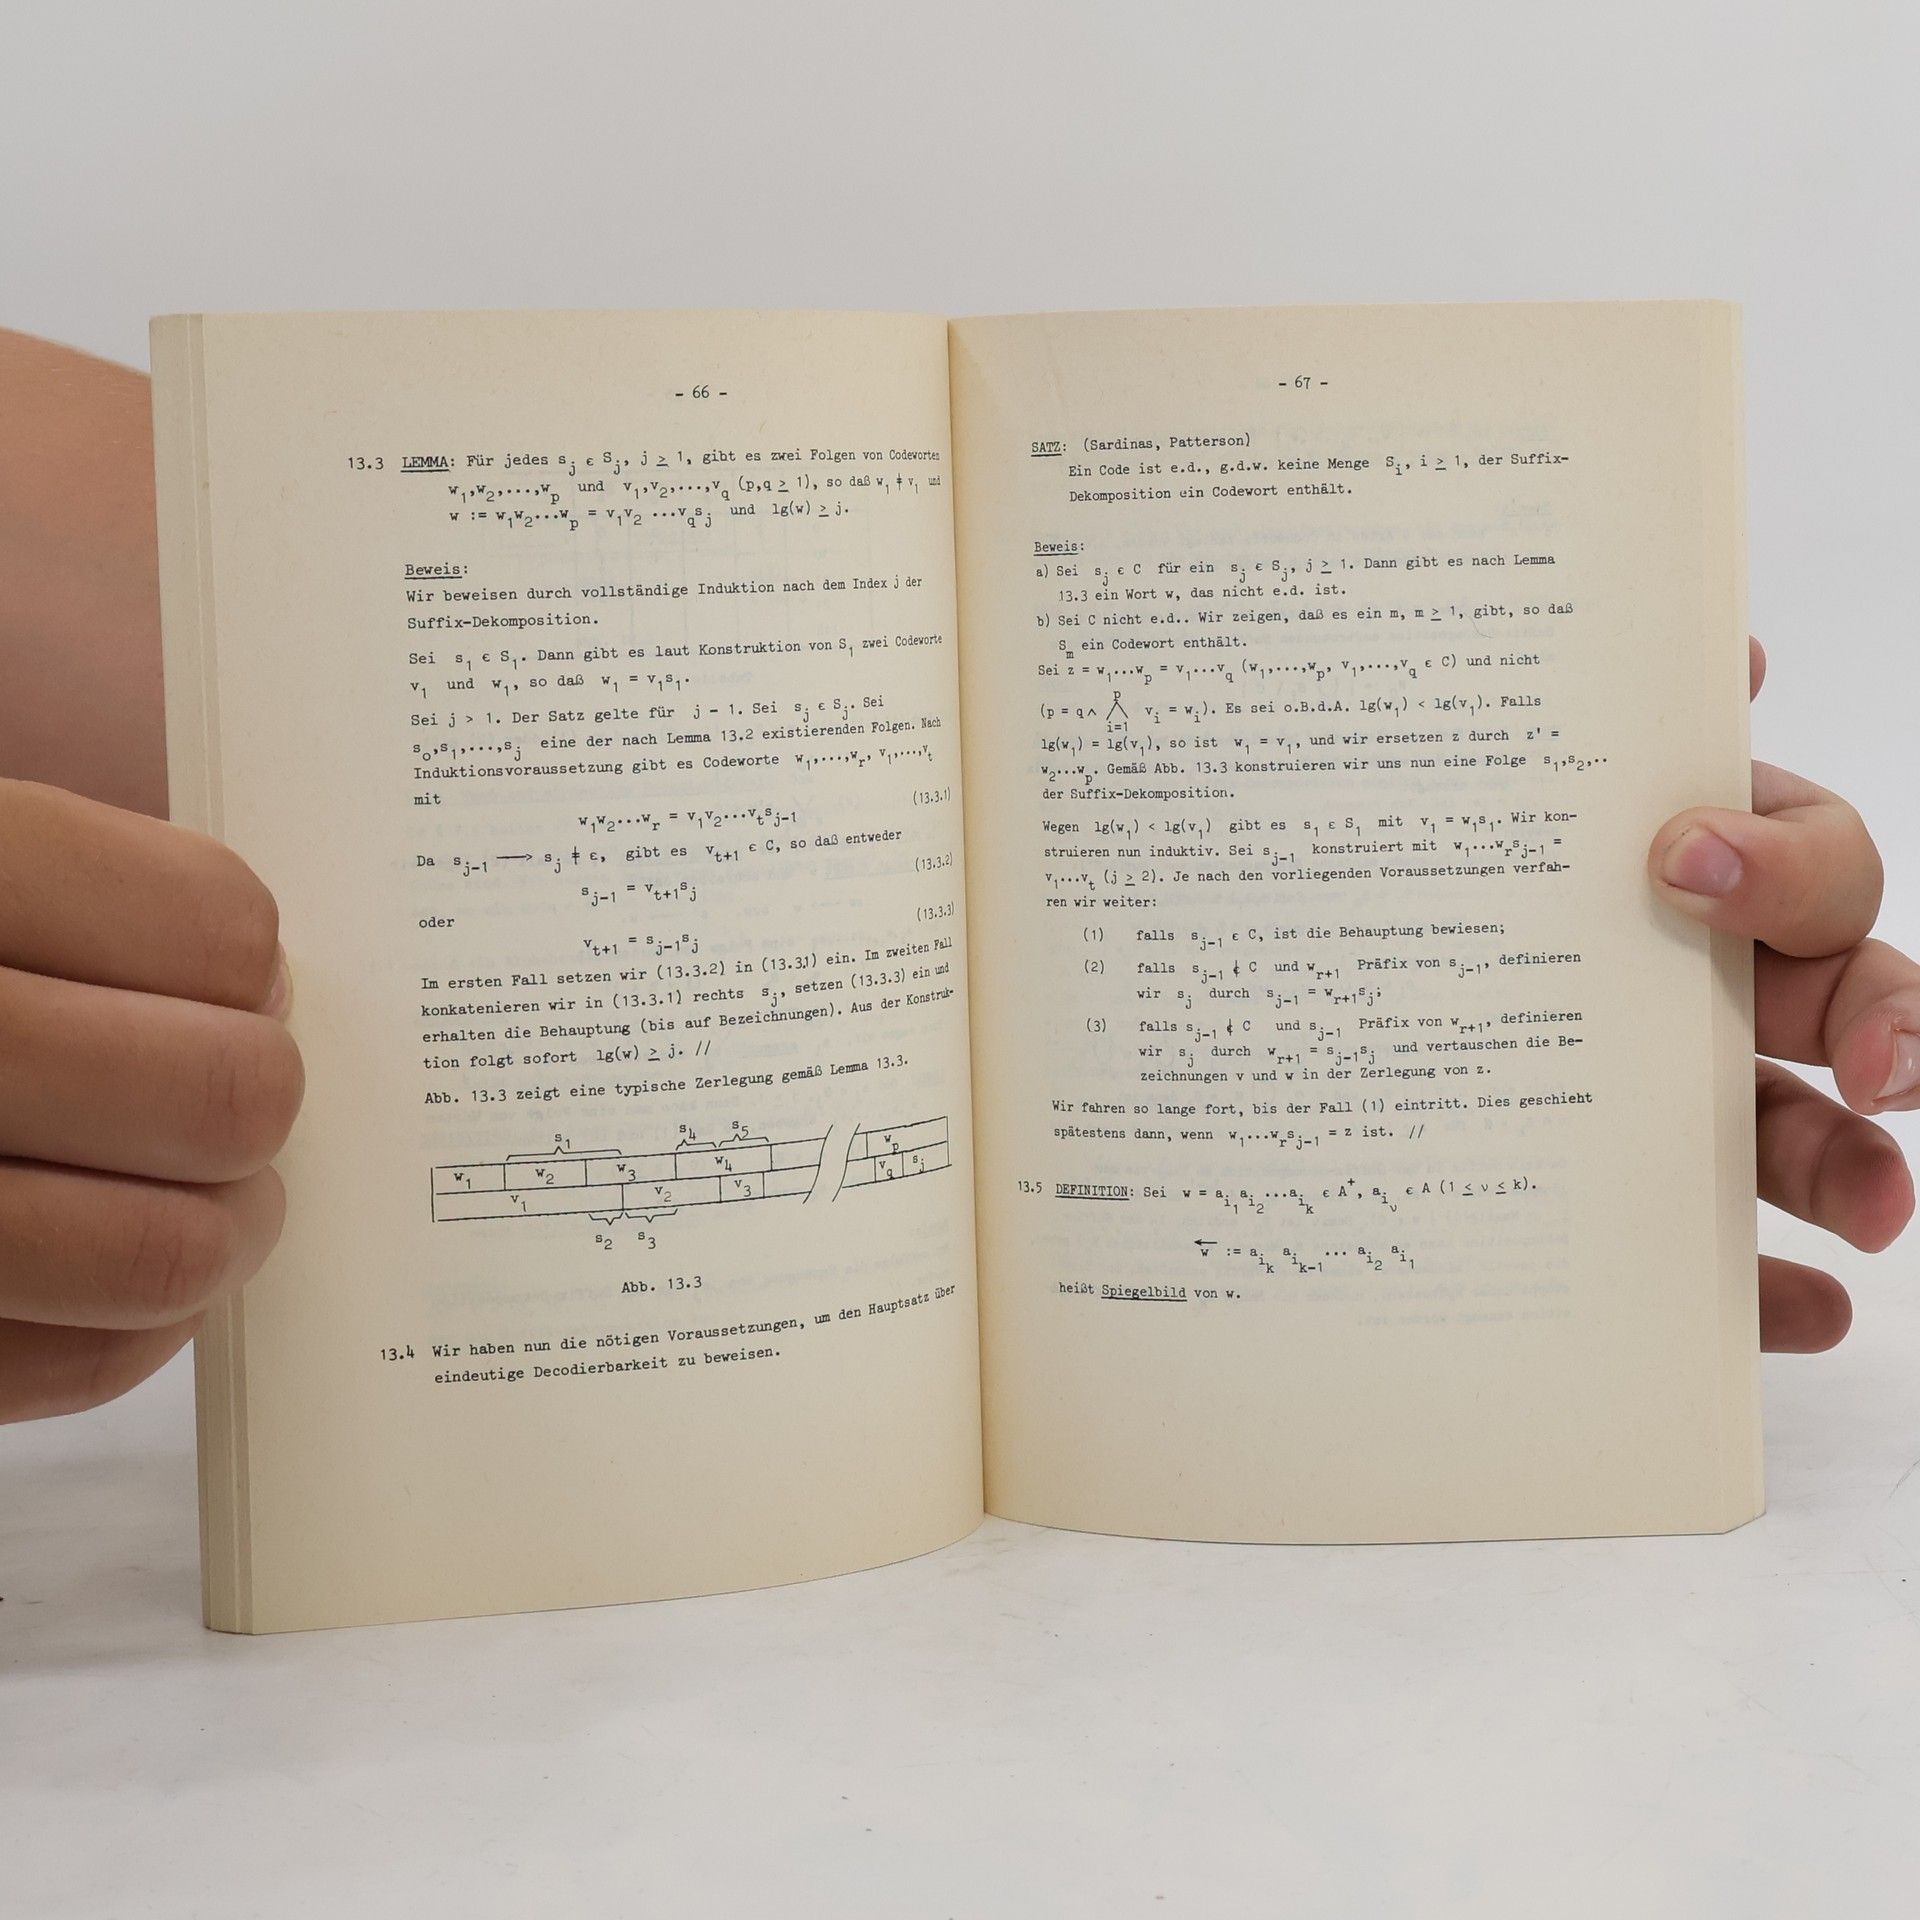 - 66 -
13.3 LEMMA: Für jedes s_j ε S_j, j ≥ 1, gibt es zwei Folgen von Codeworten
w_1,w_2,...,w_p und v_1,v_2,...,v_q (p,q ≥ 1), so daß w_1 ≠ v_1 und
w := w_1w_2...w_p = v_1v_2 ...v_qs_j und lg(w) ≥ j.
Beweis:
Wir beweisen durch vollständige Induktion nach dem Index j der
Suffix-Dekomposition.
Sei s_1 ε S_1. Dann gibt es laut Konstruktion von S_1 zwei Codeworte
v_1 und w_1, so daß w_1 = v_1s_1.
Sei j > 1. Der Satz gelte für j - 1. Sei s_j ε S_j. Sei
s_o,s_1,...,s_j eine der nach Lemma 13.2 existierenden Folgen. Nach
Induktionsvoraussetzung gibt es Codeworte w_1,...,w_r, v_1,...,v_t
mit
w_1w_2...w_r = v_1v_2...v_ts_j-1 (13.3.1)
Da s_j-1 ⟶ s_j ≠ ε, gibt es v_t+1 ε C, so daß entweder
s_j-1 = v_t+1s_j (13.3.2)
oder
v_t+1 = s_j-1s_j (13.3.3)
Im ersten Fall setzen wir (13.3.2) in (13.3.1) ein. Im zweiten Fall
konkatenieren wir in (13.3.1) rechts s_j, setzen (13.3.3) ein und
erhalten die Behauptung (bis auf Bezeichnungen). Aus der Konstruk-
tion folgt sofort lg(w) ≥ j. //
Abb. 13.3 zeigt eine typische Zerlegung gemäß Lemma 13.3.
s_1 s_4 s_5
w_1 w_2 w_3 w_4 w_p
v_1 v_2 v_3 v_q s_j
s_2 s_3
Abb. 13.3
13.4 Wir haben nun die nötigen Voraussetzungen, um den Hauptsatz über
eindeutige Decodierbarkeit zu beweisen.
- 67 -
SATZ: (Sardinas, Patterson)
Ein Code ist e.d., g.d.w. keine Menge S_i, i ≥ 1, der Suffix-
Dekomposition ein Codewort enthält.
Beweis:
a) Sei s_j ε C für ein s_j ε S_j, j ≥ 1. Dann gibt es nach Lemma
13.3 ein Wort w, das nicht e.d. ist.
b) Sei C nicht e.d.. Wir zeigen, daß es ein m, m ≥ 1, gibt, so daß
S_m ein Codewort enthält.
Sei z = w_1...w_p = v_1...v_q (w_1,...,w_p, v_1,...,v_q ε C) und nicht
(p = q ∧ ⋀_i=1^p v_i = w_i). Es sei o.B.d.A. lg(w_1) < lg(v_1). Falls
lg(w_1) = lg(v_1), so ist w_1 = v_1, und wir ersetzen z durch z' =
w_2...w_p. Gemäß Abb. 13.3 konstruieren wir uns nun eine Folge s_1,s_2,..
der Suffix-Dekomposition.
Wegen lg(w_1) < lg(v_1) gibt es s_1 ε S_1 mit v_1 = w_1s_1. Wir kon-
struieren nun induktiv. Sei s_j-1 konstruiert mit w_1...w_rs_j-1 =
v_1...v_t (j ≥ 2). Je nach den vorliegenden Voraussetzungen verfah-
ren wir weiter:
(1) falls s_j-1 ε C, ist die Behauptung bewiesen;
(2) falls s_j-1 ∉ C und w_r+1 Präfix von s_j-1, definieren
wir s_j durch s_j-1 = w_r+1s_j;
(3) falls s_j-1 ∉ C und s_j-1 Präfix von w_r+1, definieren
wir s_j durch w_r+1 = s_j-1s_j und vertauschen die Be-
zeichnungen v und w in der Zerlegung von z.
Wir fahren so lange fort, bis der Fall (1) eintritt. Dies geschieht
spätestens dann, wenn w_1...w_rs_j-1 = z ist. //
13.5 DEFINITION: Sei w = a_i_1 a_i_2 ...a_i_k ε A^+, a_i_ν ε A (1 ≤ ν ≤ k).
←w := a_i_k a_i_k-1 ... a_i_2 a_i_1
heißt Spiegelbild von w.